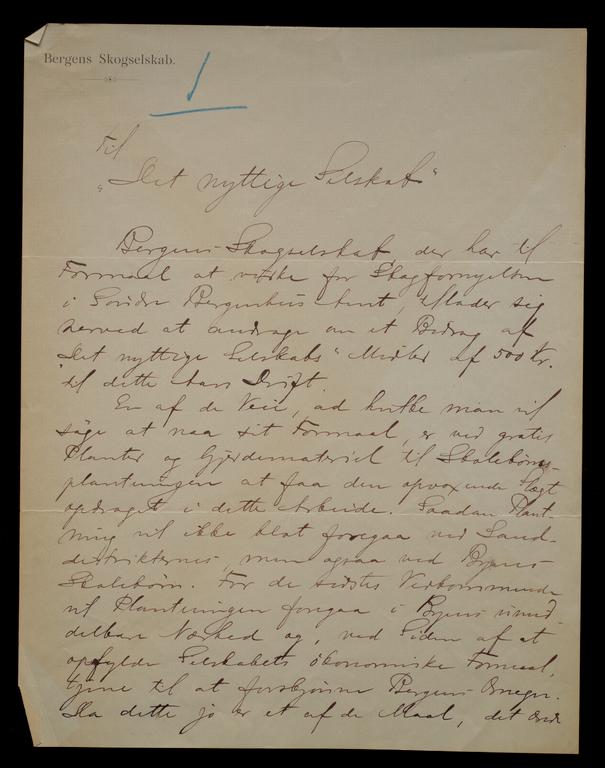 Bergens Skogselskab.
1
Til
"Det nyttige Selskab"
Bergens Skogselskab, der har til
Formaal at virke for Skogfornyelsen
i Søndre Bergenhus Amt, tillader sig
herved at andrage om et Bidrag af
"Det nyttige Selskabs" Midler af 500 Kr.
til dette Aars Drift.
En af de Veie, ad hvilke man vil
søge at naa sit Formaal, er ved gratis
Planter og Gjerdemateriel til Skolebørns-
plantningen at faa den opvoxende Slægt
opdraget i dette Arbeide. Saadan Plant-
ning vil ikke blot foregaa ved Land-
distrikternes, men ogsaa ved Byens
Skolebørn. For de sidstes Vedkommende
vil Plantningen foregaa i Byens umid-
delbare Nærhed og, ved Siden af at
opfylde Selskabets økonomiske Formaal,
tjene til at forskjønne Bergens Omegn.
Da dette jo er et af de Maal, det